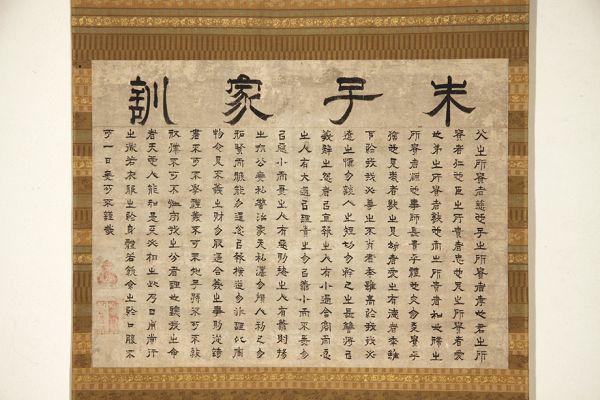 朱子家訓
父之所貴者慈也子之所貴者孝也君之所
貴者仁也臣之所貴者忠也兄之所貴者愛
也弟之所貴者敬也夫之所貴者和也婦之
所貴者也事師長貴乎禮也交朋友貴乎
信也見老者敬之見幼者愛之有德者年雖
下於我我必尊之不肖者年雖高於我我必
遠之慎勿談人之短切勿矜己之長讐者以
義解之怨者以直報之人有小過含容而忍
之人有大過以理責之勿以善小而不為勿
以惡小而為之人有惡則掩之人有善則揚
之處公無私讐治家無私法勿損人利己勿
妬賢而嫉能勿逞忿以報橫逆勿非禮以害
物命見不義之財勿取遇合義之事則從詩
書不可不學禮義不可不知子孫不可不教
奴僕不可不恤守我之分者理也聽我之命
者天也人能如是天必相之此乃日用常行
之道若衣服之於身體若飲食之於口腹不
可一日無也可不謹哉